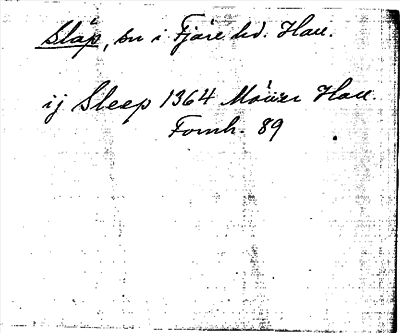 Släp, sn i Fjäre hd. Hall.
ij Sleep 1364 Möller Hall.
Fornh. 89